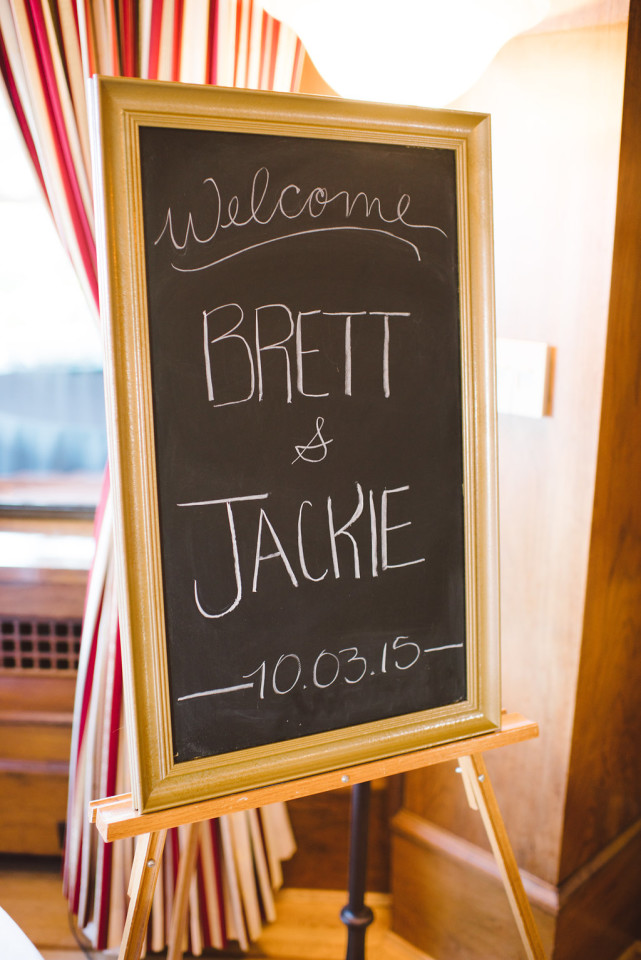 Welcome
BRETT
&
JACKIE
10.03.15